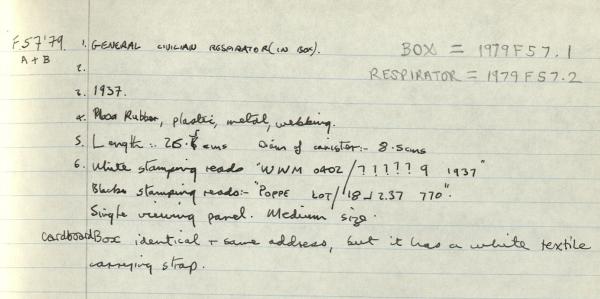 F57'79. 1. GENERAL CIVILIAN RESPIRATOR (IN BOX). BOX = 1979F57.1
A + B
2. RESPIRATOR = 1979F57.2
3. 1937.
4. Rubber, plastic, metal, webbing.
5. Length:- cms Diam of canister:- 8.5cms
6. White stamping reads "WWM 0402/????? 9 1937"
Black stamping reads:- "POPPE LOT/18 2.37 770".
Single viewing panel. Medium size.
cardboard Box identical + same address, but it has a white textile
carrying strap.